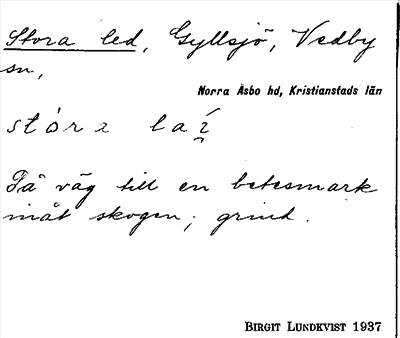 Stora led, Gyllsjö, Vedby
sn,
Norra Åsbo hd, Kristianstads län
stóra laí̯
Få väg till en betesmark
inåt skogen; grind.
BIRGIT LUNDKVIST 1937